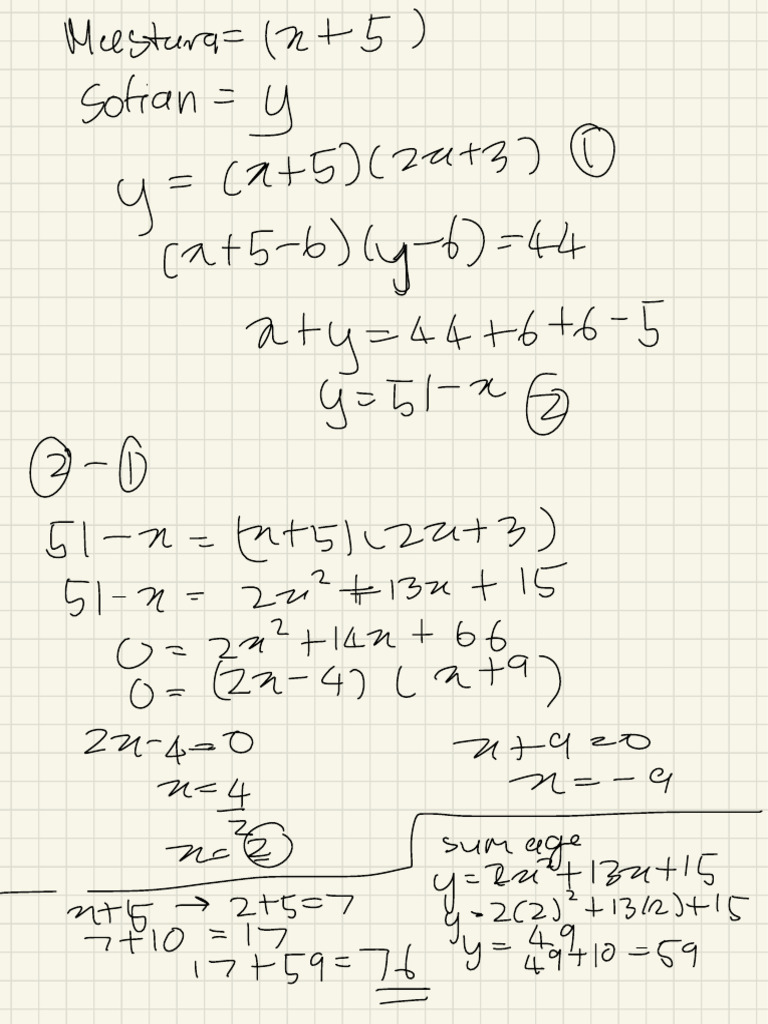 Mustura = (x+5)
Sofian = y
y = (x+5)(2x+3) ①
(x+5-6)(y-6) = 44
x+y = 44+6+6-5
y = 51-x ②
② - ①
51-x = (x+5)(2x+3)
51-x = 2x² + 13x + 15
0 = 2x² + 14x + 66
0 = (2x-4) (x+9)
2x-4=0
x = 4/2
x = 2
x+9=0
x = -9
x+5 → 2+5=7
7+10 = 17
17+59 = 76
sum age
y = 2x² + 13x + 15
y = 2(2)² + 13(2) + 15
y = 49
49+10 = 59